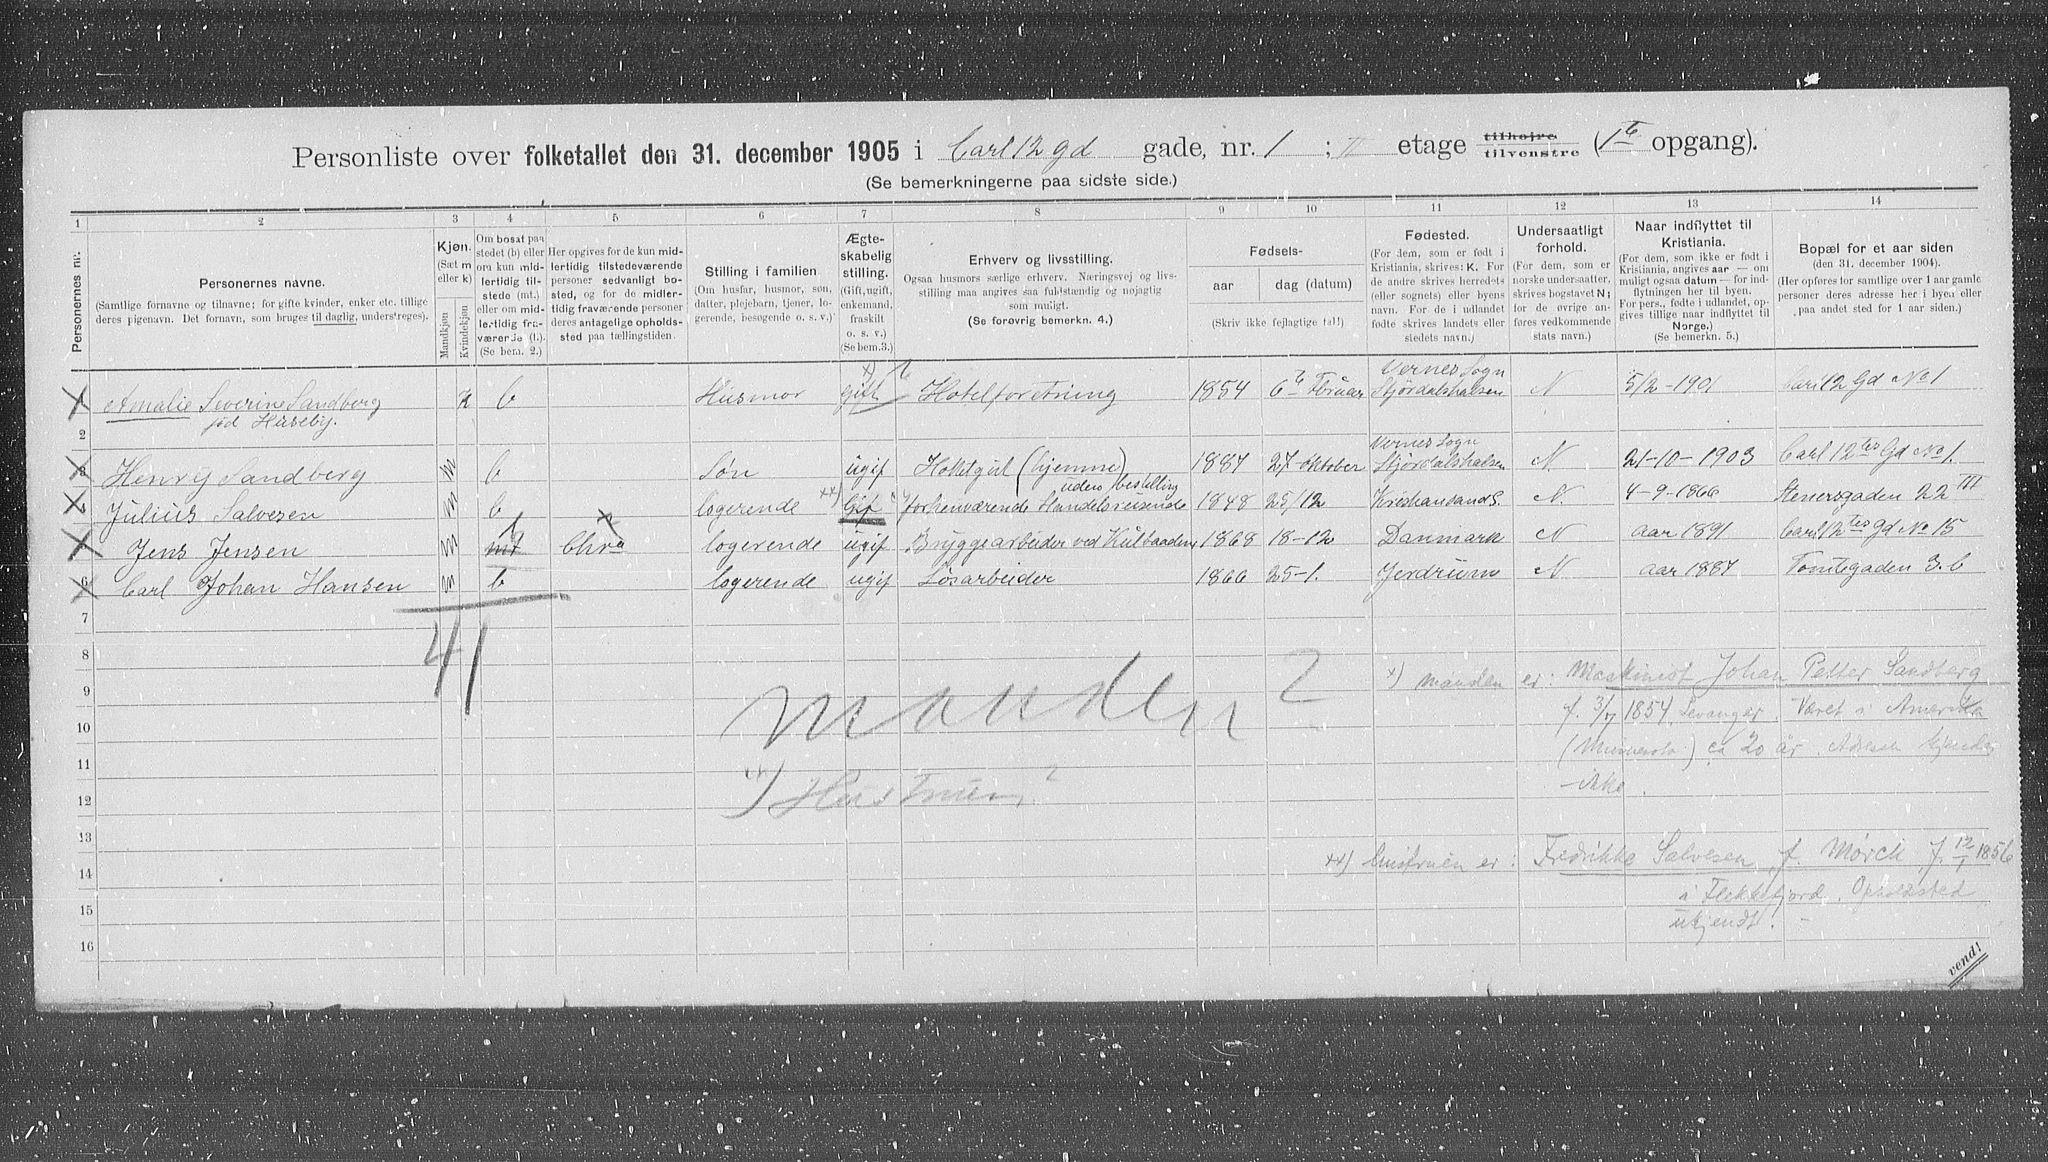 Personliste over folketallet den 31. december 1905 i Carl 12 Gd gade, nr. 1 ; II etage tilhøjre tilvenstre (1te opgang).
(Se bemerkningerne paa sidste side.)
1 2 3 4 5 6 7 8 9 10 11 12 13 14
Personernes nr.
Personernes navne.
(Samtlige fornavne og tilnavne; for gifte kvinder, enker etc. tillige
deres pigenavn. Det fornavn, som bruges til daglig, understreges).
Kjøn.
(Sæt m
eller k)
Mandkjøn
Kvindekjøn
Om bosat paa
stedet (b) eller
om kun mid-
lertidig til-
stede (mt.)
eller om mid-
lertidig fra-
værende (f.).
(Se bem. 2.)
Her opgives for de kun mid-
lertidig tilstedeværende
personer sedvanlig bo-
sted, og for de midler-
tidig fraværende personer
deres antagelige opholds-
sted paa tællingstiden.
Stilling i familien
(Om husfar, husmor, søn,
datter, plejebarn, tjener, lo-
gerende, besøgende o. s. v.)
Ægte-
skabelig
stilling.
(Gift, ugift,
enkemand,
fraskilt
o. s. v.)
(Se bem.3.)
Erhverv og livsstilling.
Ogsaa husmors særlige erhverv. Næringsvej og livs-
stilling maa angives saa fuldstændig og nøjagtig
som muligt.
(Se forøvrig bemerkn. 4.)
Fødsels-
aar dag (datum)
(Skriv ikke fejlagtige tal!)
Fødested.
(For dem, som er født i
Kristiania, skrives: K. For
de andre skrives herredets
(eller sognets) eller byens
navn. For de i udlandet
fødte skrives landets eller
stedets navn.)
Undersaatligt
forhold.
(For dem, som er
norske undersaatter,
skrives bogstavet N;
for de øvrige an-
føres vedkommende
stats navn.)
Naar indflyttet til
Kristiania.
(For dem, som ikke er født i
Kristiania, angives aar — om
muligt ogsaa datum — for ind-
flytningen her til byen.
For pers., fødte i udlandet, op-
gives tillige naar indflyttet til
Norge.)
(Se bemerkn. 5.)
Bopæl for et aar siden
(den 31. december 1904).
(Her opføres for samtlige over 1 aar gamle
personer deres adresse her i byen eller
paa andet sted for 1 aar siden.)
1 Amalie Severine Sandberg k b Husmor Gift Hotelforetning 1854 6te Februar Vernes Sogn Stjørdalshalsen N 5/2-1901 Carl 12 Gd No 1
fød Huseby.
2
3 Henry Sandberg m b Søn ugif Hotelgut (hjemme) 1887 27 Oktober Vernes Sogn Stjørdalshalsen N. 21-10-1903 Carl 12tes Gd No 1.
uden bestilling
Julius Salvesen m b logerende xx) Gif forhenværende Handelsreisende 1848 25/12 Kristiansand S. N. 4-9-1866 Stenersgaden 22 III
Jens Jensen m mt b Chra x logerende ugif Bryggearbeider ved Kulbaadene 1868 18-12 Danmark N aar 1891 Carl 12tes Gd No 15
6 Carl Johan Hansen m b logerende ugif Løsarbeider 1866 25-1. Jerdrum N aar 1887 Tomtegaden 3.b
7
41
8
9
10
11
12
13
14
15
16
manden ?
xx) Hustruen ?
x) manden er: Maskinist Johan Petter Sandberg
f. 3/7 1854, Levanger. Været i Amerika
(Minnesota.) ca 20 år. Adresse kjendes
ikke.
xx) Husfruen er: Fredrikke Salvesen f. Mørch f. 12/1 1856
i Flekkefjord. Opholdssted
ukjendt. -
vend!